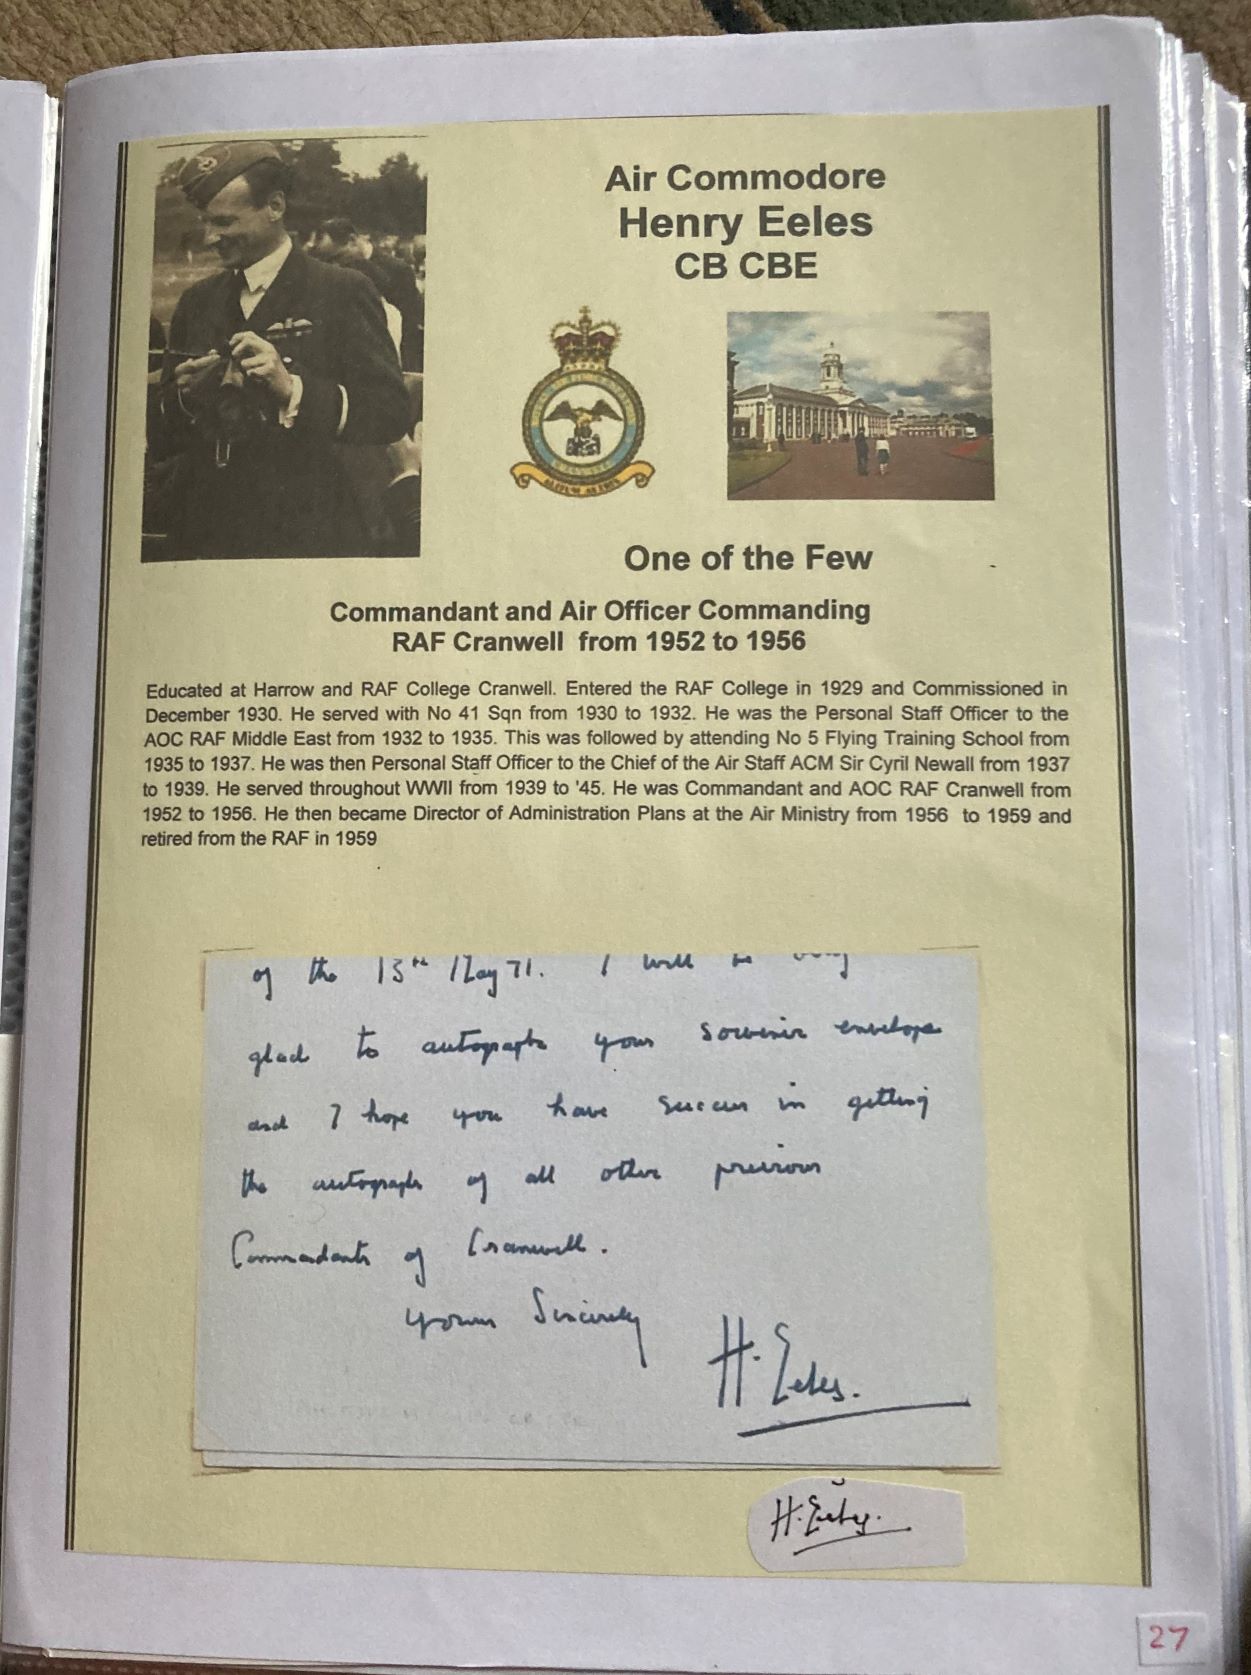 Air Commodore
Henry Eeles
CB CBE
One of the Few
Commandant and Air Officer Commanding
RAF Cranwell from 1952 to 1956
Educated at Harrow and RAF College Cranwell. Entered the RAF College in 1929 and Commissioned in
December 1930. He served with No 41 Sqn from 1930 to 1932. He was the Personal Staff Officer to the
AOC RAF Middle East from 1932 to 1935. This was followed by attending No 5 Flying Training School from
1935 to 1937. He was then Personal Staff Officer to the Chief of the Air Staff ACM Sir Cyril Newall from 1937
to 1939. He served throughout WWII from 1939 to '45. He was Commandant and AOC RAF Cranwell from
1952 to 1956. He then became Director of Administration Plans at the Air Ministry from 1956 to 1959 and
retired from the RAF in 1959
of the 13th May 71. I will be very
glad to autograph your souvenir envelope
and I hope you have success in getting
the autographs of all other previous
Commandants of Cranwell.
Yours Sincerely
H. Eeles.
H. Eeles.
27